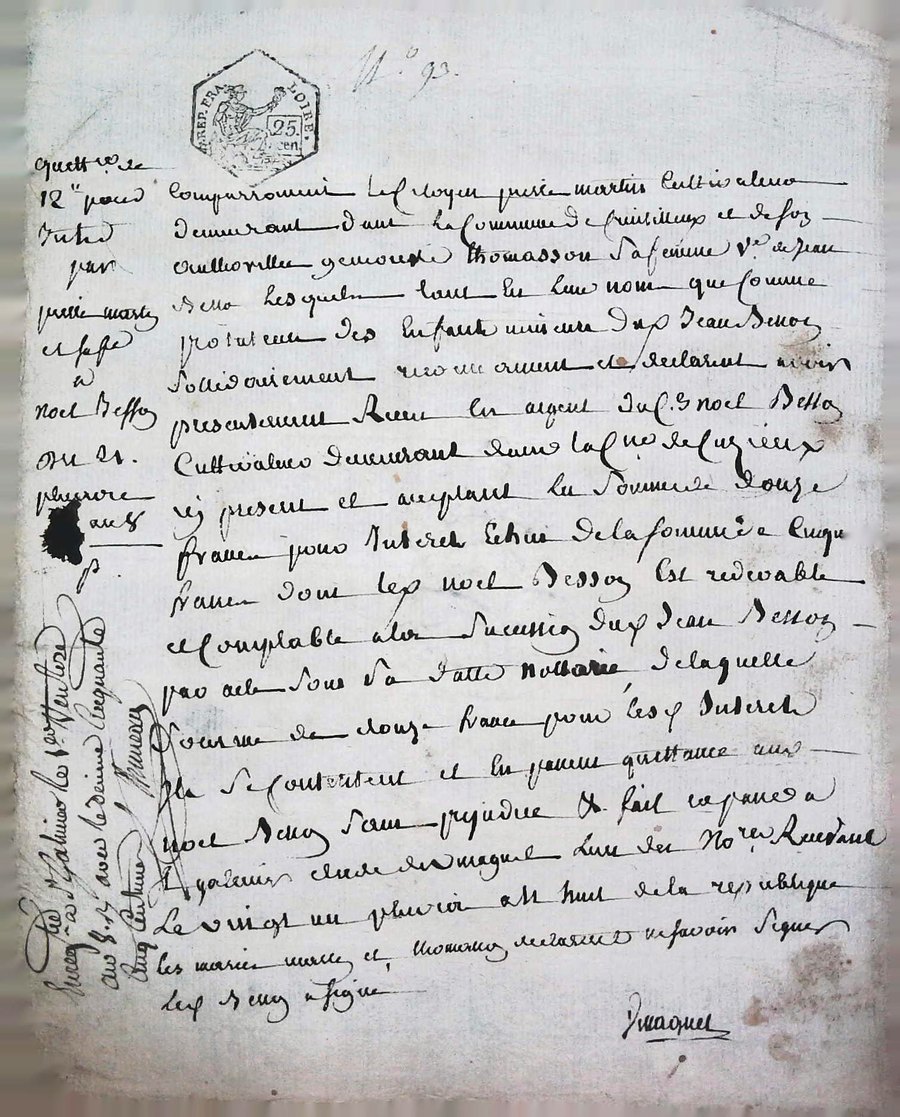 N.° 93.
REP. FRA. LOIRE.
25. cen.
quitt.ce de
12 pour
Intert
par
pierre martin
et sa fe
a
noel Besson
du 21.
pluviose
an 8
Comparroment le Citoyen pierre martin Cultivateur
demeurant dans la Commune de et de son
thomasson sa femme V.e de Jean
Besson Lesquels tant En leur nom que Comme
protuteur des Enfants mineurs dud Jean Besson
Sollidairement et declarent avoir
presentement Receu En argent du C.en noel Besson
Cultivateur demeurant dans la C.ne de Cuzieux
icy present et acceptant La Somme de douze
francs pour Interet Echus de la somme de Cinq
francs dont led noel Besson Est redevable
et Comptable a la Sucession dud Jean Besson
par acte Sous Sa datte Nottariée, de laquelle
Somme de douze francs pour lesd Interets
Ils Se Contentent et En passent quittance aud
noel Besson Sans prejudice & fait et passé a
S.t galmier etude de Dmagnet L'un des No.res Recevant
Le vingt un pluviose an huit de la republique
les mariés martin et thomasson declarent ne savoir Signer
Led Besson a signé
Dmagnet
S.t Galmier le Ventose
an 8. avec le decime Cinquante
Cinq Centimes